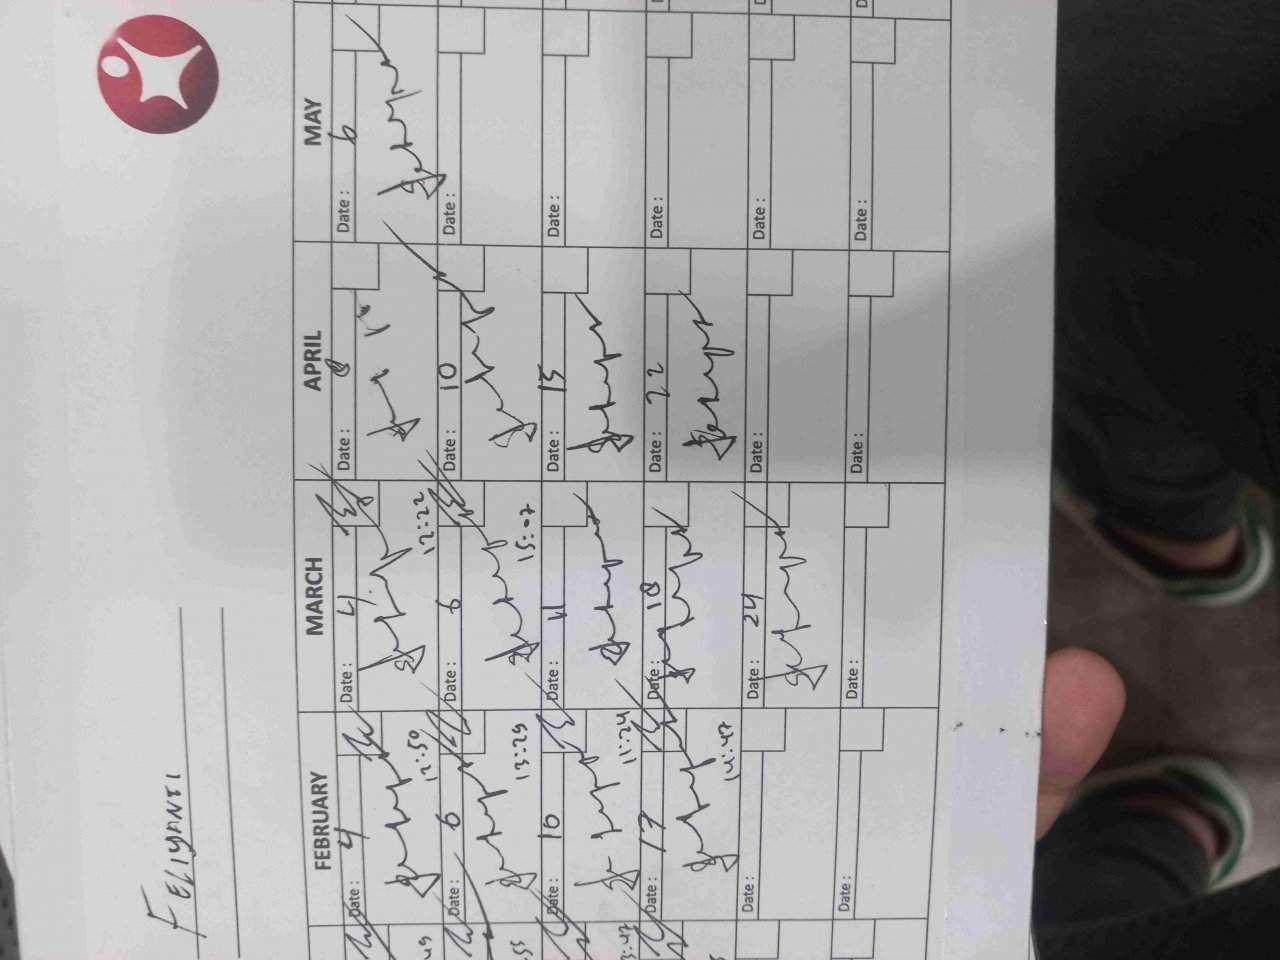 FELIYANTI
FEBRUARY MARCH APRIL MAY
Date: 4 Date: 4 Date: 8 Date: 6
12:50 12:22
Date: 6 Date: 6 Date: 10 Date:
13:29 15:07
Date: 10 Date: 11 Date: 15 Date:
11:24
Date: 17 Date: 18 Date: 22 Date:
14:47
Date: Date: 24 Date: Date:
Date: Date: Date: Date: